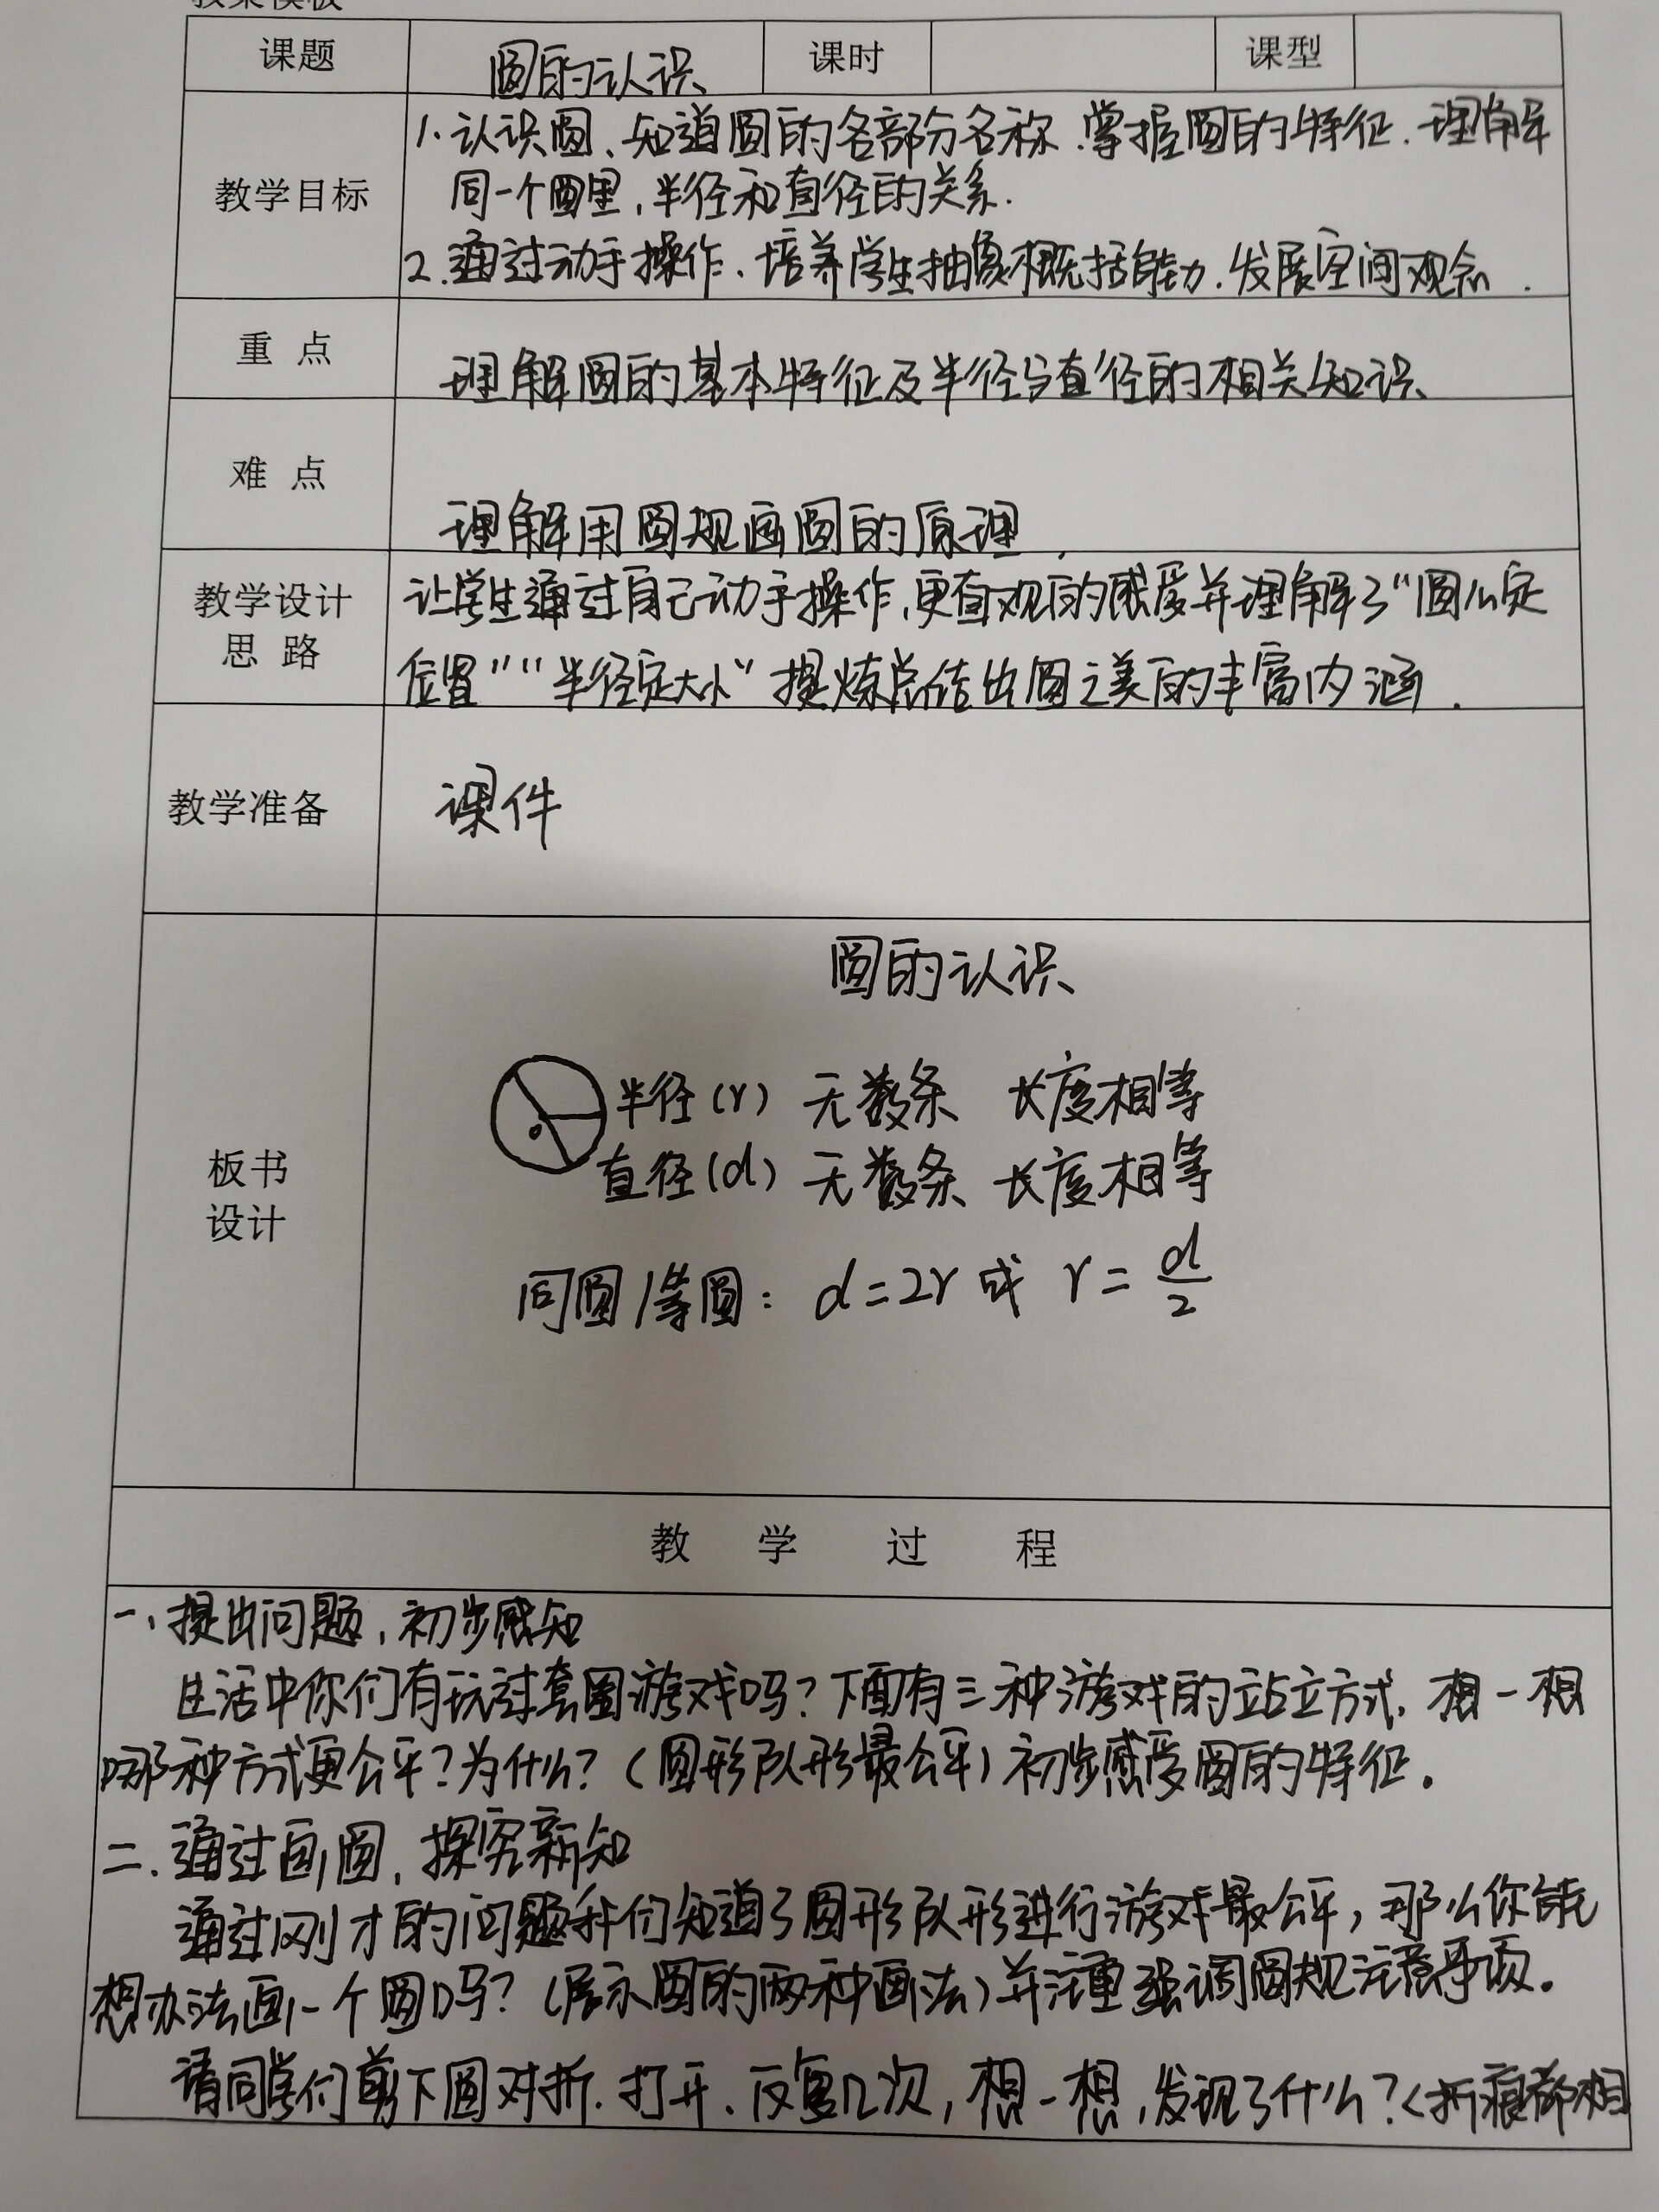 课题 圆的认识 课时 课型
教学目标
1. 认识圆、知道圆的各部分名称.掌握圆的特征.理解
同一个圆里,半径和直径的关系.
2.通过动手操作、培养学生抽象概括能力.发展空间观念.
重 点 理解圆的基本特征及半径与直径的相关知识
难 点 理解用圆规画圆的原理.
教学设计
思 路
让学生通过自己动手操作,更直观的感受并理解了“圆心定
位置”“半径定大小”提炼总结出圆之美的丰富内涵.
教学准备 课件
板书
设计
圆的认识
半径(r) 无数条 长度相等
o
直径(d) 无数条 长度相等
同圆/等圆: d=2r 或 r=d/2
教 学 过 程
一、提出问题,初步感知
生活中你们有玩过套圈游戏吗?下面有三种游戏的站立方式,想一想
哪种方式更公平?为什么?(圆形队形最公平)初步感受圆的特征。
二.通过画圆,探究新知
通过刚才的问题我们知道了圆形队形进行游戏最公平,那么你能
想办法画一个圆吗?(展示圆的两种画法)并注重强调圆规注意事项。
请同学们剪下圆对折.打开、反复几次,想一想,发现了什么?(折痕都相